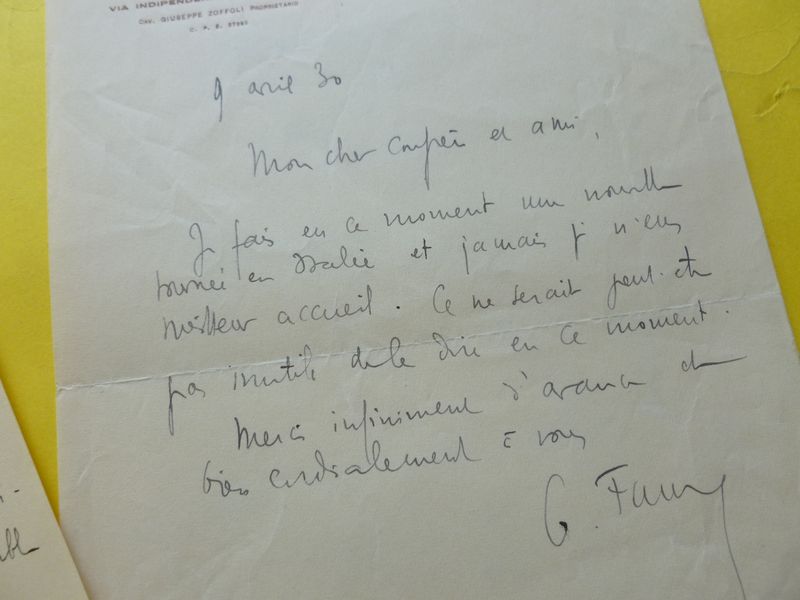 VIA INDIPENDEN
CAV. GIUSEPPE ZOFFOLI PROPRIETARIO
C. P. E. 57993
9 avril 30
Mon cher confrère et ami,
Je fais en ce moment une nouvelle
tournée en Italie et jamais je n'eus
meilleur accueil. Ce ne serait peut-être
pas inutile de le dire en ce moment.
Merci infiniment d'avance et
bien cordialement à vous
G.